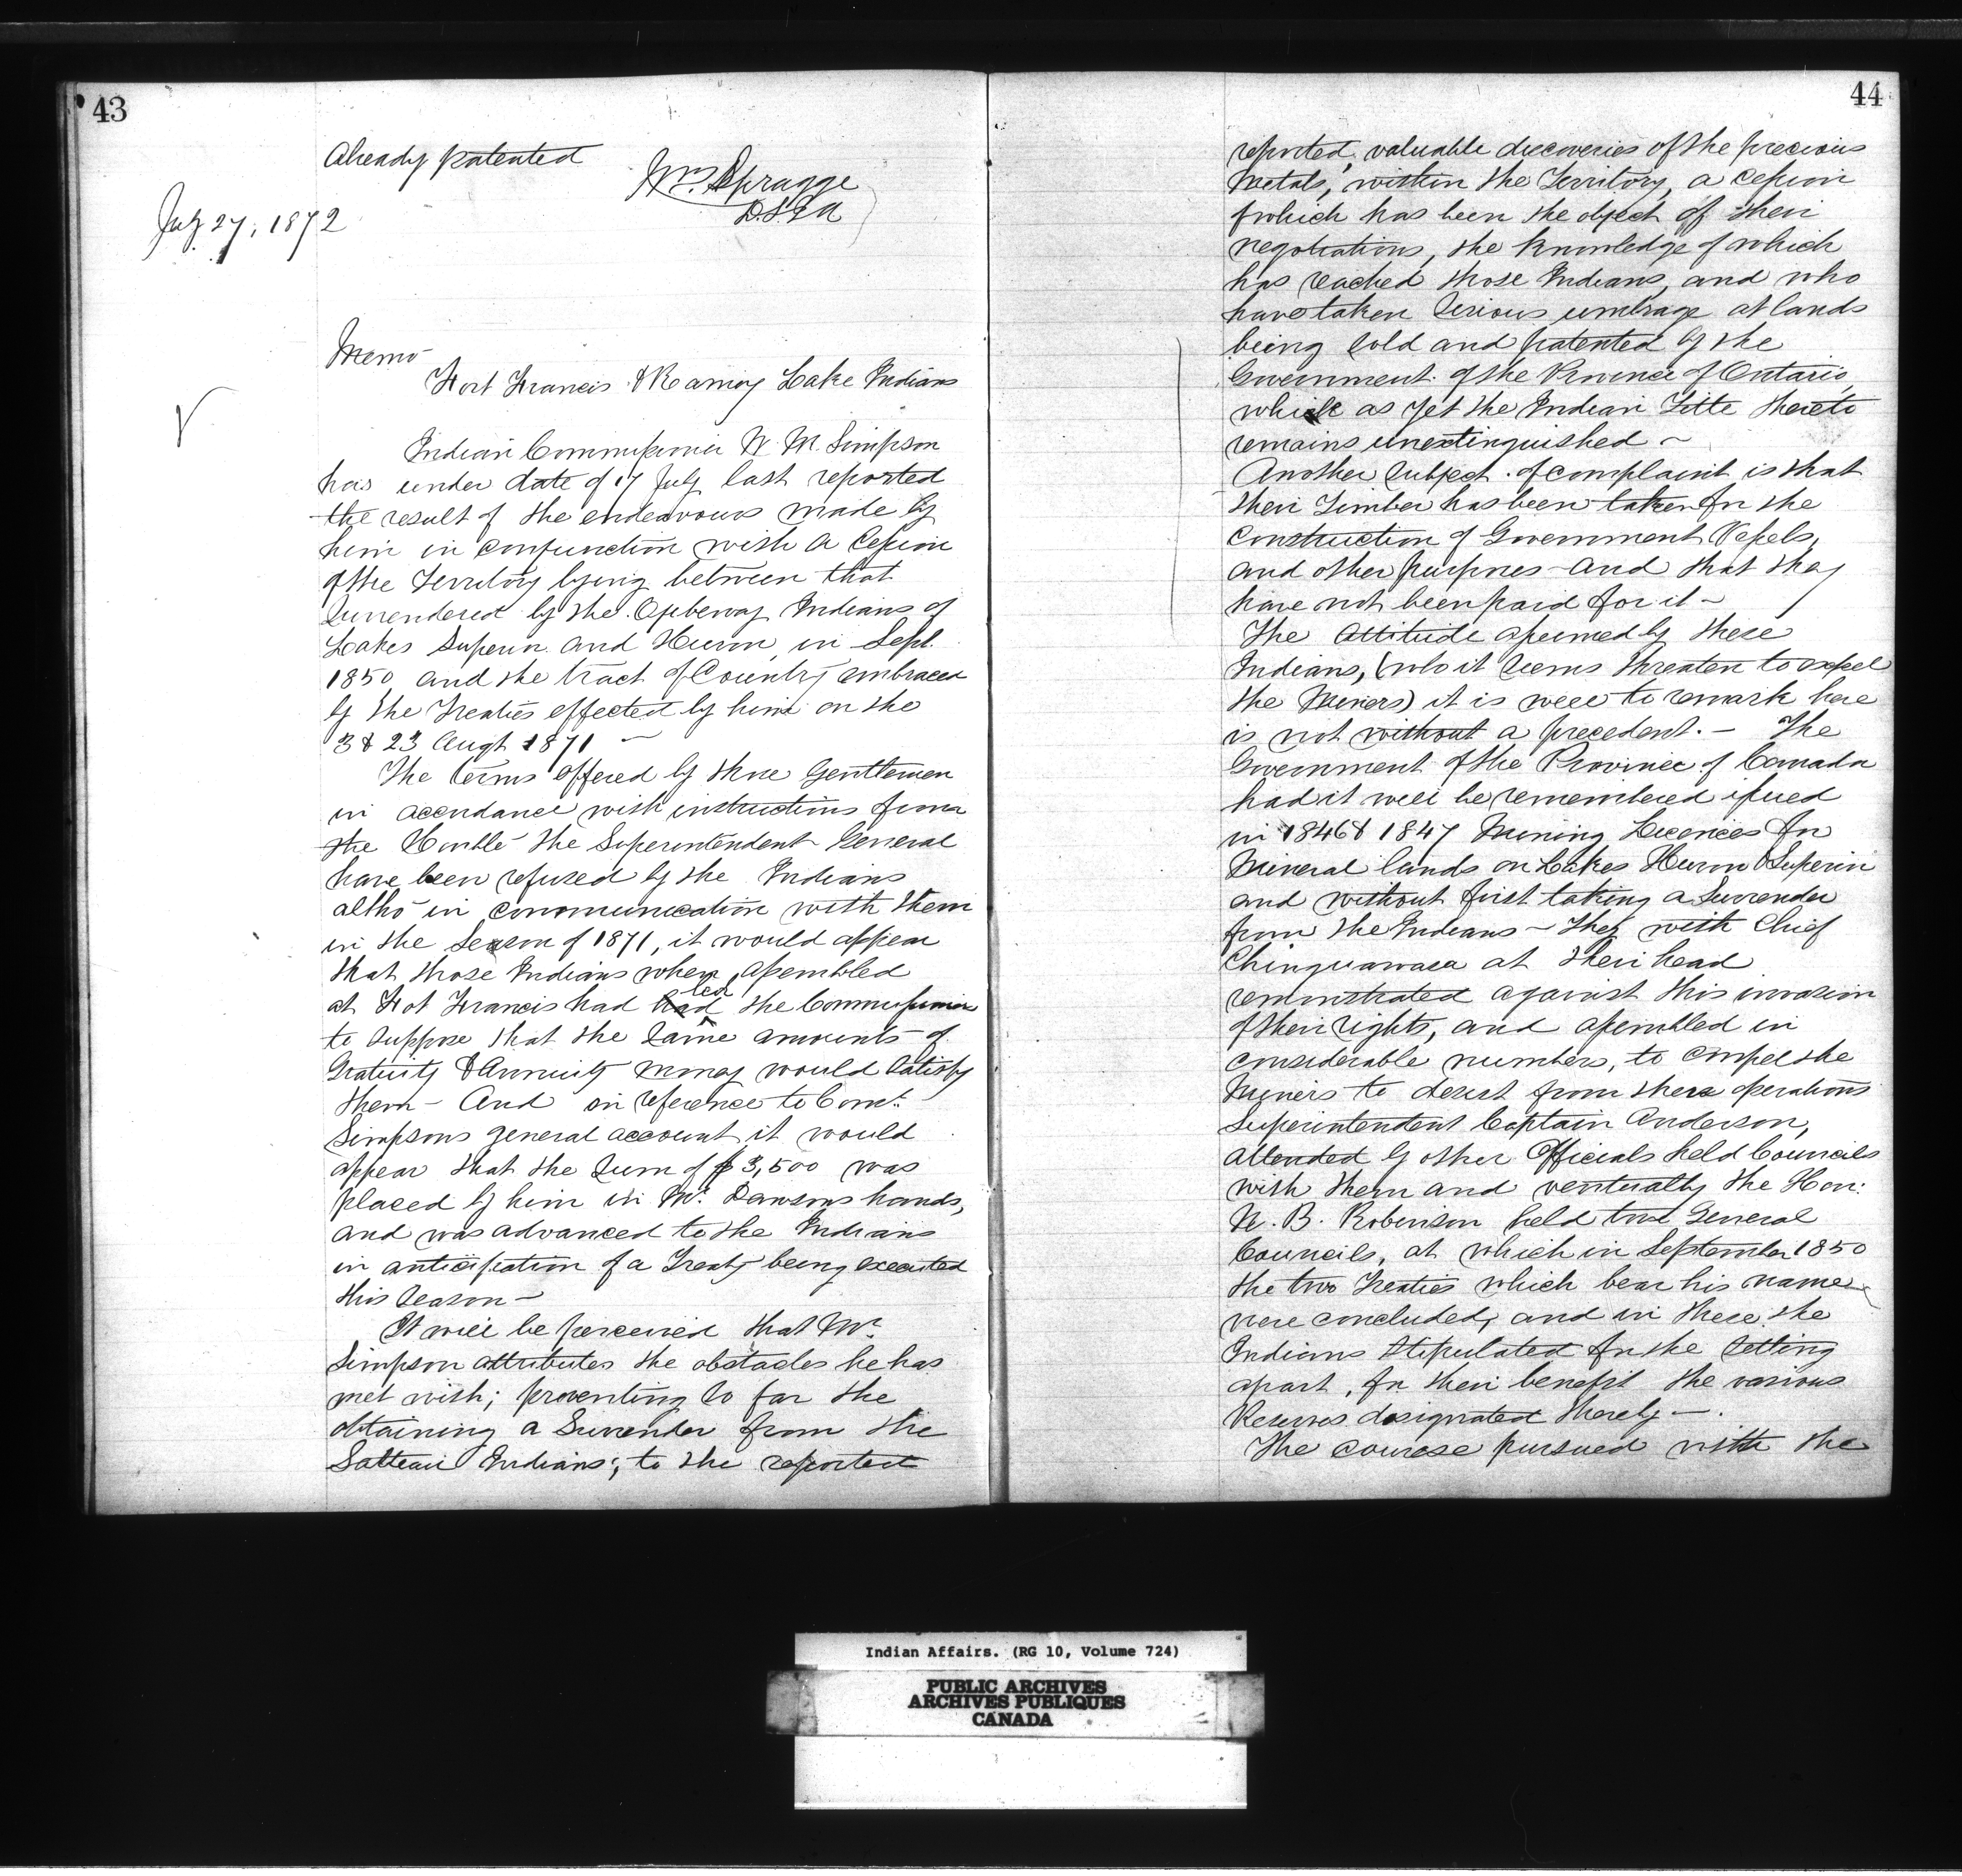 43
Already patented
Wm Spragge
D.S.I.A
July 27, 1872
Memo
Fort Francis & Rainy Lake Indians
Indian Commissioner W. M. Simpson
has under date of 17 July last reported
the result of the endeavours made by
him in conjunction with a Cession
of the Territory lying between that
Surrendered by the Ojibeway Indians of
Lakes Superior and Huron, in Sept.
1850 and the tract of Country embraced
by the Treaties effected by him on the
3 & 23 Augt 1871 —
The terms offered by those Gentlemen
in accordance with instructions from
the Honble the Superintendent General
have been refused by the Indians
altho' in communication with them
in the Season of 1871, it would appear
that those Indians when assembled
at Fot Francis had led the Commissioner
to suppose that the same amounts of
Gratuity & Annuity money would satisfy
them — And on reference to Comr.
Simpsons general account it would
appear that the Sum of $3,500 was
placed by him in Mr. Dawsons hands,
and was advanced to the Indians
in anticipation of a Treaty being executed
this Season —
It will be perceived that Mr.
Simpson attributes the obstacles he has
met with; preventing so far the
obtaining a Surrender from the
Salteaux Indians; to the reported
44
reported, valuable discoveries of the precious
Metals, within the Territory, a Cession
of which has been the object of their
negotiations, the knowledge of which
has reached those Indians, and who
have taken serious umbrage at lands
being sold and patented by the
Government of the Province of Ontario,
while as yet the Indian Title thereto
remains unextinguished —
Another subject of complaint is that
their Timber has been taken for the
Construction of Government Vessels,
and other purposes — and that they
have not been paid for it —
The attitude assumed by these
Indians, (who it seems threaten to expel
the Miners) it is well to remark here
is not without a precedent. — The
Government of the Province of Canada
had it will be remembered issued
in 1846 & 1847 Mining Licences for
Mineral lands on Lakes Huron & Superior
and without first taking a Surrender
from the Indians — They with Chief
Chinguawaca at their head
remonstrated against this invasion
of their rights, and assembled in
considerable numbers, to compel the
Miners to desist from their operations
Superintendent Captain Anderson,
attended by other Officials held Councils
with them and eventually the Hon:
W. B. Robinson held two General
Councils, at which in September 1850
the two Treaties which bear his name
were concluded, and in these the
Indians stipulated for the setting
apart, for their benefit the various
Reserves designated thereby —.
The course pursued with the
Indian Affairs. (RG 10, Volume 724)
PUBLIC ARCHIVES
ARCHIVES PUBLIQUES
CANADA